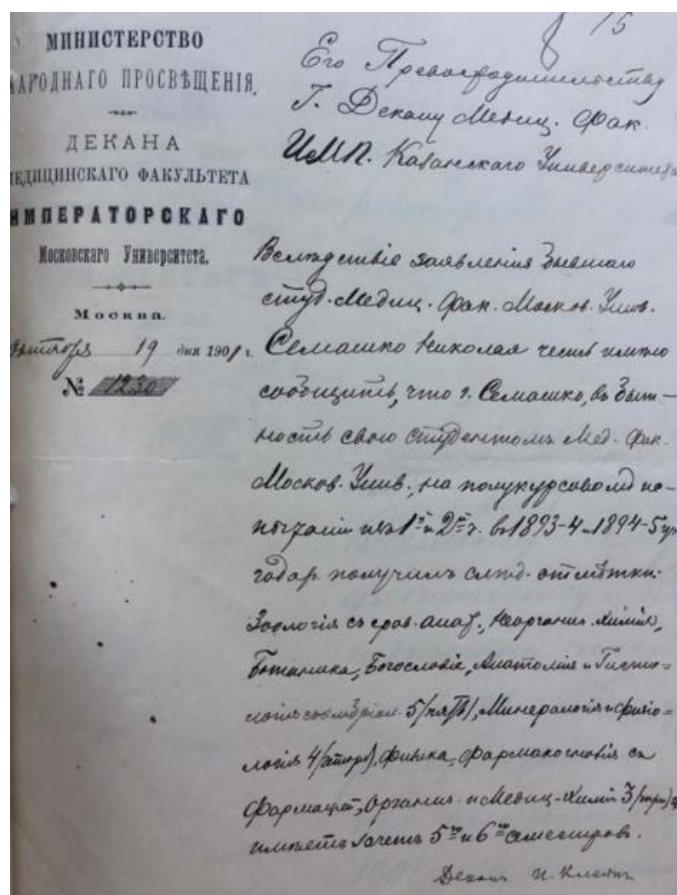 15
МИНИСТЕРСТВО
НАРОДНАГО ПРОСВѢЩЕНІЯ.
ДЕКАНА
МЕДИЦИНСКАГО ФАКУЛЬТЕТА
ИМПЕРАТОРСКАГО
Московскаго Университета.
Москва.
19 дня 1901 г.
№ 1230
Его Превосходительству
Г. Декану Медиц. Фак.
ИМП. Казанскаго Университета
Вслѣдствіе заявленія бывшаго
студ. Медиц. Фак. Москов. Унив.
Семашко Николая честь имѣю
сообщить, что г. Семашко, въ быт-
ность свою студентомъ Мед. Фак.
Москов. Унив., на полукурсовомъ ис-
пытаніи изъ 1 и 2 ч. въ 1893-4 и 1894-5 уч.
годах получилъ слѣд. отмѣтки:
Зоологія съ срав. анат., Неорганич. химія,
Ботаника, Богословіе, Анатомія и Гисто-
логія съ эмбріол. 5/пять/, Минералогія и физіо-
логія 4/четыре/, Физика, Фармакогнозія съ
Фармаціей, Органич. и Медиц. Химія 3/три/ и
имѣетъ зачетъ 5 и 6 семестровъ.
Деканъ И. Клейнъ